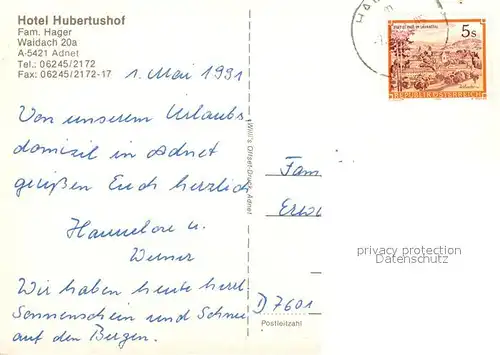 Hotel Hubertushof
Fam. Hager
Waidach 20a
A-5421 Adnet
Tel.: 06245/2172
Fax: 06245/2172-17
1. Mai 1991
Von unserem Urlaubs
domizil in Adnet
grüßen Euch herzlich
Hannelore u.
Werner
Wir haben heute herrl.
Sonnenschein und Schnee
auf den Bergen.
Willi's Offset-Druck Adnet
5s
REPUBLIK ÖSTERREICH
Fam
Erw
privacy protection
Datenschutz
D 7601
Postleitzahl